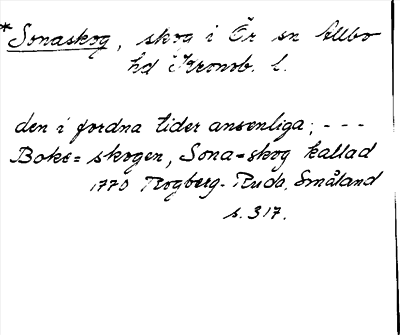 *Sonaskog, skog i Ör sn Allbo
hd Kronob. l.
den i fordna tider ansenliga; - - -
Boke=skogen, Sona=skog kallad
1770 Rogberg-Ruda, Småland
s. 317.